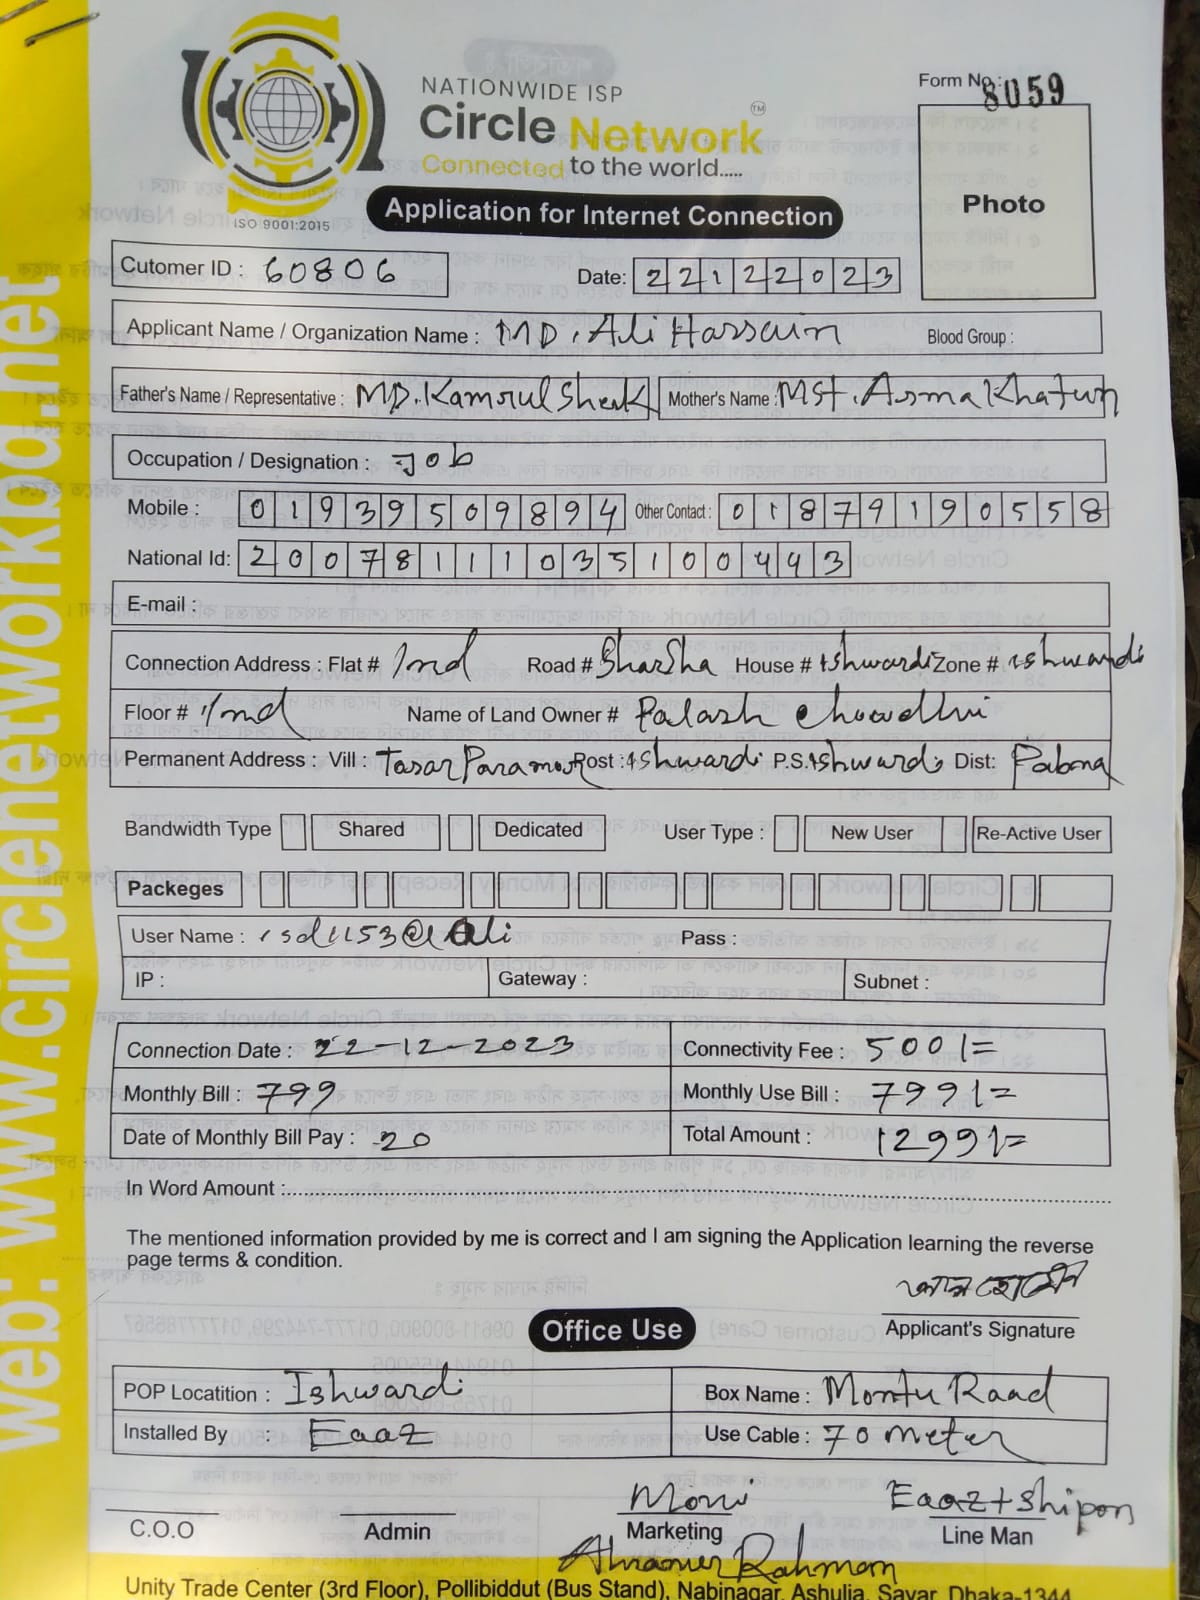 NATIONWIDE ISP
Circle Network™
Connected to the world.....
ISO 9001:2015
Form No.: 8059
Photo
Application for Internet Connection
Cutomer ID : 60806 Date: 22122023
Applicant Name / Organization Name : MD. Ali Hassain Blood Group :
Father's Name / Representative : MD. Kamrul Sheak Mother's Name : MST. Asma Khatun
Occupation / Designation : Job
Mobile : 01939509894 Other Contact : 01879190558
National Id: 20078111035100443
E-mail :
Connection Address : Flat # 2nd Road # Sharsha House # Ishwardi Zone # Ishwardi
Floor # 2nd Name of Land Owner # Palash Chowdhri
Permanent Address : Vill : Post : Ishwardi P.S. Ishwardi Dist: Pabna
Bandwidth Type Shared Dedicated User Type : New User Re-Active User
Packeges
User Name : isd1153@Ali Pass :
IP : Gateway : Subnet :
Connection Date : 22-12-2023 Connectivity Fee : 500/=
Monthly Bill : 799 Monthly Use Bill : 799/=
Date of Monthly Bill Pay : 20 Total Amount : 1299/=
In Word Amount :
The mentioned information provided by me is correct and I am signing the Application learning the reverse
page terms & condition.
Applicant's Signature
Office Use
POP Locatition : Ishwardi Box Name : Montu Raad
Installed By Eaaz Use Cable : 70 meter
Moni Eaaz + Shipon
C.O.O Admin Marketing Line Man
Rahman
Unity Trade Center (3rd Floor), Pollibiddut (Bus Stand), Nabinagar, Ashulia, Savar, Dhaka-1344
web: www.circlenetworkbd.net